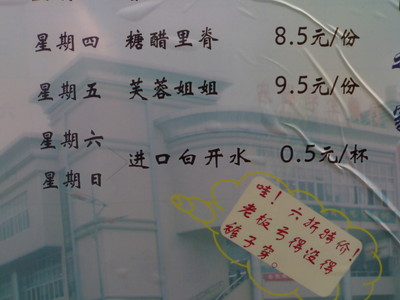 星期四 糖醋里脊 8.5元/份
星期五 芙蓉姐姐 9.5元/份
星期六
进口白开水 0.5元/杯
星期日
哇！六折跨价！
老板亏得没得
裤子穿。